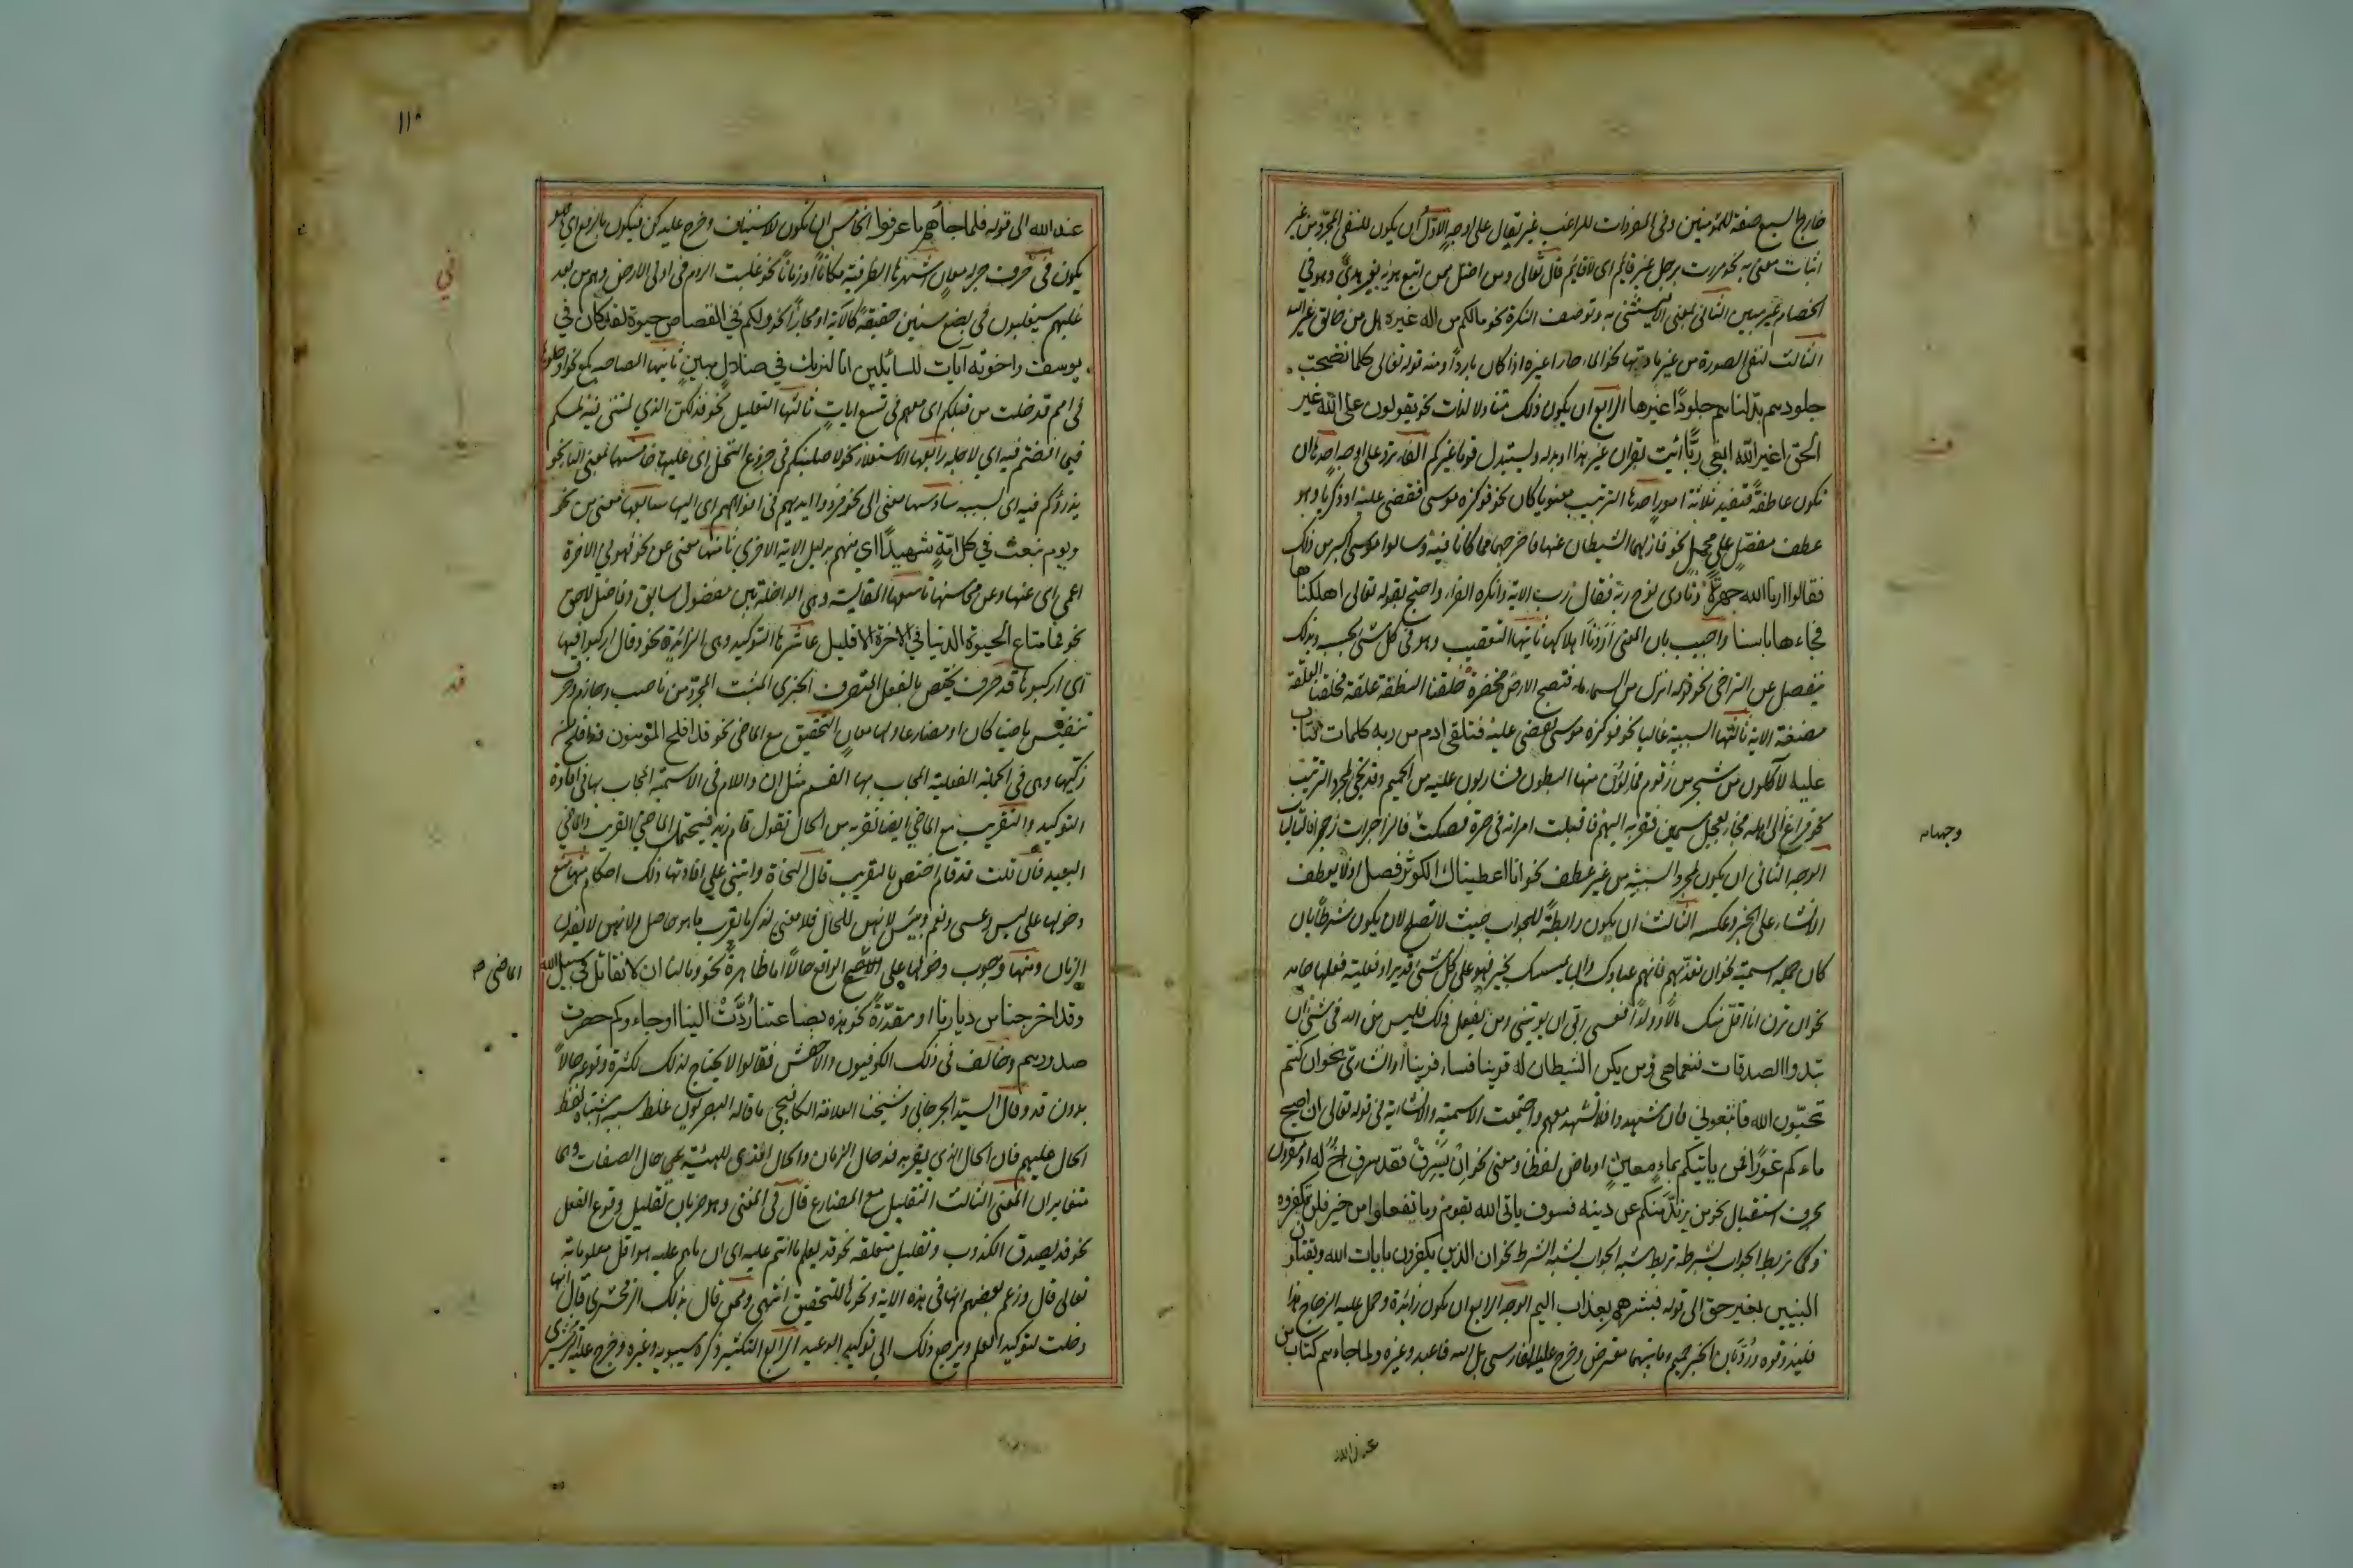 خارج السبع صفة للمؤمنين وفى المفردات للراغب غير تقال على اوجه الاول ان يكون للنفى المجرد من غير
اثبات معنى به نحو مررت برجل غير قائم اى لا قائم قال تعالى ومن اضل ممن اتبع هويه بغير هدى وهو فى
الخصام غير مبين الثانى بمعنى الا فيستثنى به وتوصف النكرة نحو مالكم من اله غيره هل من خالق غير الله
الثالث لنفى الصورة من غير مادتها نحو الماء حارا غيره اذا كان باردا ومنه قوله تعالى كلما نضجت
جلودهم بدلناهم جلودا غيرها الرابع ان يكون ذلك متناولا لذات نحو يقولون على الله غير
الحق اغير الله ابغى ربا ائت بقران غير هذا او بدله ويستبدل قوما غيركم الفاء ترد على اوجه احدها ان
تكون عاطفة فتفيد ثلاثة امور احدها الترتيب معنويا كان نحو فوكزه موسى فقضى عليه او ذكريا وهو
عطف مفصل على مجمل نحو فازلهما الشيطان عنها فاخرجهما مما كانا فيه وسالوا موسى اكبر من ذلك
فقالوا ارنا الله جهرة ونادى نوح ربه فقال رب الاية وانكره الفراء واحتج بقوله تعالى اهلكناها
فجاءها باسنا واجيب بان المعنى اردنا اهلاكها ثانيها التعقيب وهو فى كل شئ بحسبه وبذلك
ينفصل عن التراخى نحو انزل من السماء ماء فتصبح الارض مخضرة خلقنا النطفة علقة فخلقنا العلقة
مضغة الاية ثالثها السببية غالبا نحو فوكزه موسى فقضى عليه فتلقى ادم من ربه كلمات فتاب
عليه لاكلون من شجر من زقوم فمالؤن منها البطون فشاربون عليه من الحميم وقد تجئ لمجرد الترتيب
نحو فراغ الى اهله فجاء بعجل سمين فقربه اليهم فاقبلت امراته فى صرة فصكت فالزاجرات زجرا فالتاليات
الوجه الثانى ان يكون لمجرد السببية من غير عطف نحو انا اعطيناك الكوثر فصل اذ لا يعطف
الانشاء على الخبر وعكسه الثالث ان يكون رابطة للجواب حيث لا تصلح لان يكون شرطا بان
كان جملة اسمية نحو ان تعذبهم فانهم عبادك وان يمسسك بخير فهو على كل شئ قدير او فعلية فعلها جامد
نحو ان ترن انا اقل منك مالا وولدا فعسى ربى ان يوتينى ومن يفعل ذلك فليس من الله فى شئ ان
تبدوا الصدقات فنعما هى ومن يكن الشيطان له قرينا فساء قرينا او انشائى نحو ان كنتم
تحبون الله فاتبعونى فان شهدوا فلا تشهد معهم واجتمعت الاسمية والانشائية فى قوله تعالى ان اصبح
ماءكم غورا فمن ياتيكم بماء معين او ماض لفظا ومعنى نحو ان يسرق فقد سرق اخ له او مقرون
بحرف استقبال نحو من يرتد منكم عن دينه فسوف ياتى الله بقوم وما تفعلوا من خير فلن تكفروه
وكما تربط الجواب بشرطه تربط شبه الجواب بشبه الشرط نحو ان الذين يكفرون بايات الله ويقتلون
النبيين بغير حق الى قوله فبشرهم بعذاب اليم الوجه الرابع ان يكون زائدة وحمل عليه الزجاج هذا
فليذوقوه ورد بان الخبر حميم وما بينهما معترض وخرج عليه الفارسى بل الله فاعبد وغيره ولما جاءهم كتاب من
ف
وجهان
عند الله
١١٥
عند الله الى قوله فلما جاءهم ما عرفوا الخامس ان يكون للاستيناف وخرج عليه كن فيكون بالرفع اى فهو
يكون فى حرف جر له معان اشهرها الظرفية مكانا او زمانا نحو غلبت الروم فى ادنى الارض وهم من بعد
غلبهم سيغلبون فى بضع سنين حقيقة كالاية او مجازا نحو ولكم فى القصاص حيوة لقد كان فى
يوسف واخوته آيات للسائلين انا لنريك فى ضلال مبين ثانيها المصاحبة كمع نحو ادخلوا
فى امم قد خلت من قبلكم اى معهم فى تسع ايات ثالثها التعليل نحو فذلكن الذى لمتننى فيه لمسكم
فيما افضتم فيه اى لاجله رابعها الاستعلاء نحو لاصلبنكم فى جذوع النخل اى عليها خامسها بمعنى الباء نحو
يذرؤكم فيه اى بسببه سادسها معنى الى نحو فردوا ايديهم فى افواههم اى اليها سابعها معنى من نحو
ويوم نبعث فى كل امة شهيدا اى منهم بدليل الاية الاخرى ثامنها معنى عن نحو فهو فى الاخرة
اعمى اى عنها وعن محاسنها تاسعها المقايسة وهى الداخلة بين مفضول سابق وفاضل لاحق
نحو فما متاع الحيوة الدنيا فى الاخرة الا قليل عاشرها التوكيد وهى الزائدة نحو وقال اركبوا فيها
اى اركبوها قد حرف يختص بالفعل المتصرف الخبرى المثبت المجرد من ناصب وجازم وحرف
تنفيس ماضيا كان او مضارعا ولها معان التحقيق مع الماضى نحو قد افلح المؤمنون قد افلح من
زكيها وهى فى الجملة الفعلية المجاب بها القسم مثل ان واللام فى الاسمية المجاب بها فى افادة
التوكيد والتقريب مع الماضى ايضا تقربه من الحال تقول قام زيد فيحتمل الماضى القريب والماضى
البعيد فان قلت قد قام اختص بالقريب قال النحاة وابتنى على افادتها ذلك احكام منها منع
دخولها على ليس وعسى ونعم وبئس لانهن للحال فلا معنى لذكر ما يقرب ما هو حاصل ولانهن لا يفدن
الزمان ومنها وجوب دخولها على الواقع حالا اما ظاهرة نحو ومالنا ان لا نقاتل فى سبيل الله
وقد اخرجنا من ديارنا او مقدرة نحو هذه بضاعتنا ردت الينا او جاءوكم حصرت
صدورهم وخالف فى ذلك الكوفيون والاخفش فقالوا لا يحتاج لذلك لكثرة وقوعه حالا
بدون قد وقال السيد الجرجانى وشيخنا العلامة الكافيجى ما قاله البصريون غلط سببه اشتباه لفظ
الحال عليهم فان الحال الذى يقربه قد حال الزمان والحال المبين للهيئة حال الصفات وهما
متغايران المعنى الثالث التقليل مع المضارع قال فى المغنى وهو ضربان تقليل وقوع الفعل
نحو قد يصدق الكذوب وتقليل متعلقه نحو قد يعلم ما انتم عليه اى ان ما هم عليه هو اقل معلوماته
تعالى قال وزعم بعضهم انها فى هذه الاية ونحوها للتحقيق انتهى وممن قال بذلك الزمخشرى قال انها
دخلت لتوكيد العلم ويرجع ذلك الى توكيد الوعيد الرابع التكثير ذكره سيبويه وغيره وخرج عليه الزمخشرى
فى
قد
الماضى صح